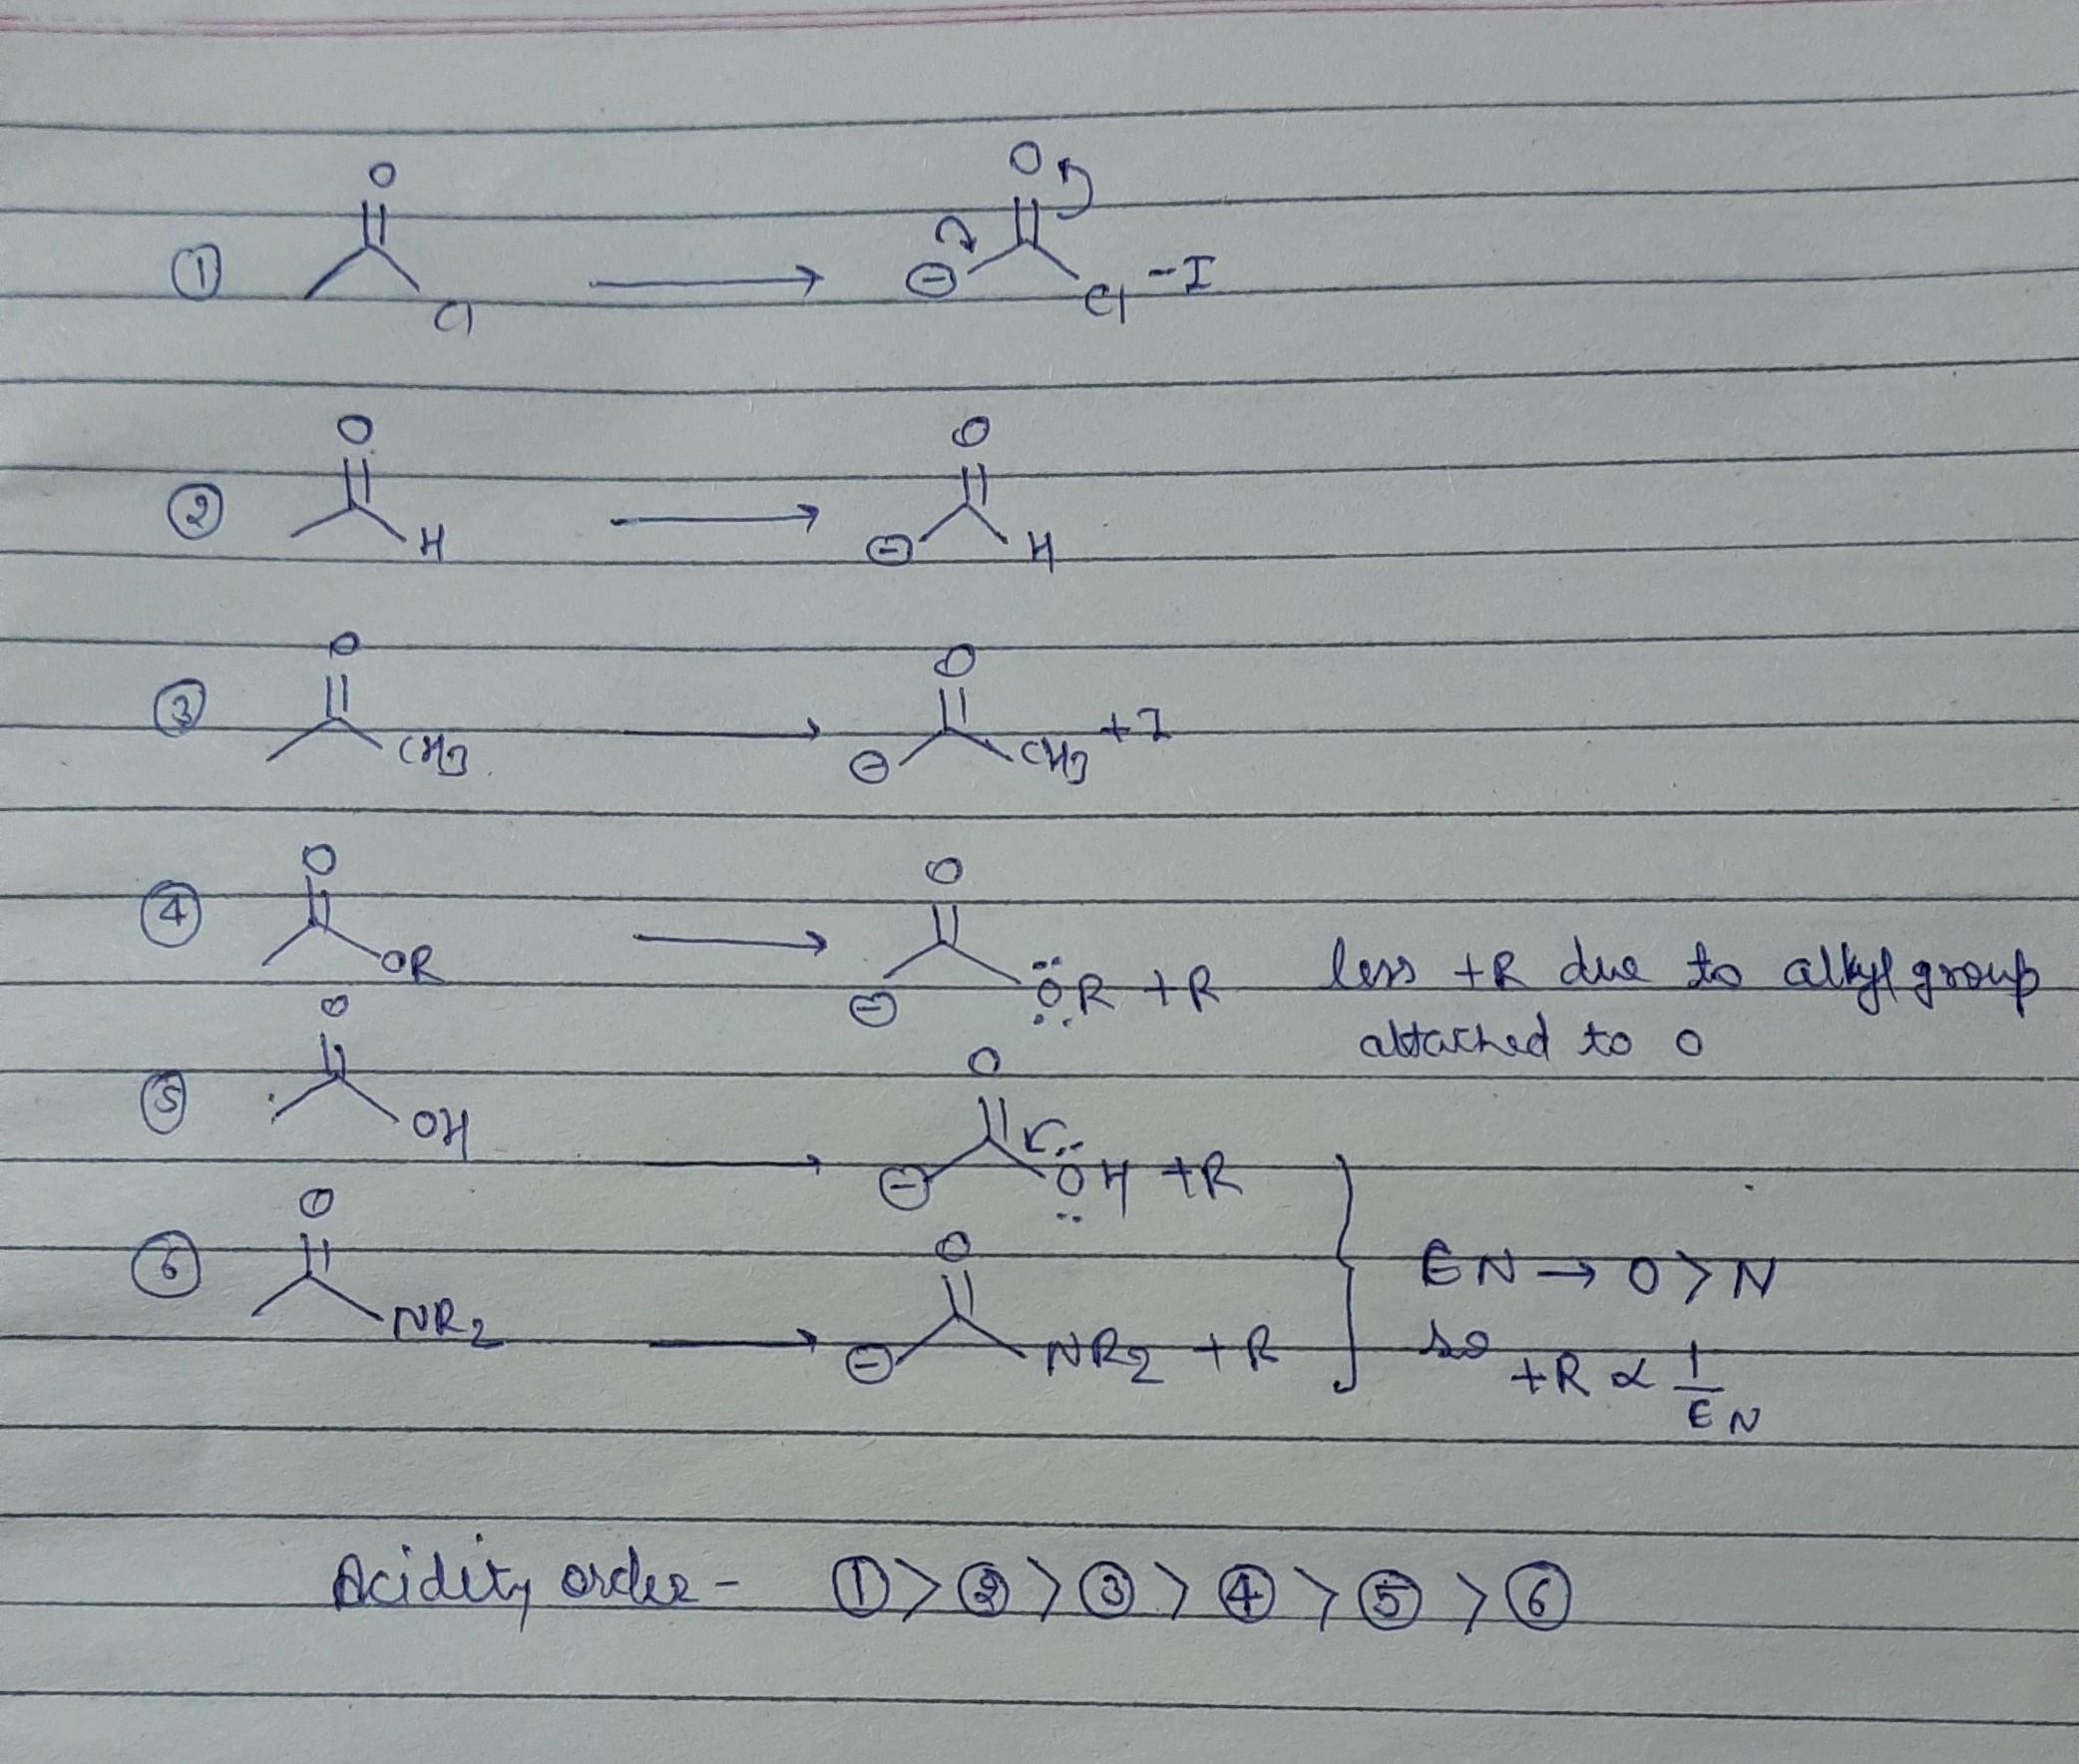 O O
① Cl ⟶ ⊖ Cl -I
O O
② H ⟶ ⊖ H
O O
③ CH3 ⟶ ⊖ CH3 +I
O O
④ OR ⟶ ⊖ OR +R less +R due to alkyl group
attached to O
O O
⑤ OH ⟶ ⊖ OH +R
O O
⑥ NR2 ⟶ ⊖ NR2 +R
EN → O > N
so +R ∝ 1/EN
Acidity order - ① > ② > ③ > ④ > ⑤ > ⑥